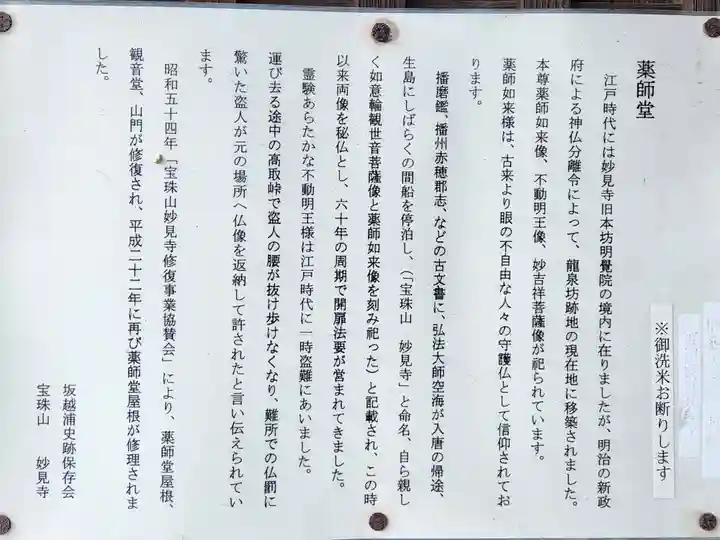 ※御洗米お断りします
薬師堂
江戸時代には妙見寺旧本坊明覺院の境内に在りましたが、明治の新政
府による神仏分離令によって、龍泉坊跡地の現在地に移築されました。
本尊薬師如来像、不動明王像、妙吉祥菩薩像が祀られています。
薬師如来様は、古来より眼の不自由な人々の守護仏として信仰されてお
ります。
播磨鑑、播州赤穂郡志、などの古文書に、弘法大師空海が入唐の帰途、
生島にしばらくの間船を停泊し、(「宝珠山 妙見寺」と命名、自ら親し
く如意輪観世音菩薩像と薬師如来像を刻み祀った)と記載され、この時
以来両像を秘仏とし、六十年の周期で開扉法要が営まれてきました。
霊験あらたかな不動明王様は江戸時代に一時盗難にあいました。
運び去る途中の高取峠で盗人の腰が抜け歩けなくなり、難所での仏罰に
驚いた盗人が元の場所へ仏像を返納して許されたと言い伝えられてい
ます。
昭和五十四年「宝珠山妙見寺修復事業協賛会」により、薬師堂屋根、
観音堂、山門が修復され、平成二十二年に再び薬師堂屋根が修理されま
した。
坂越浦史跡保存会
宝珠山 妙見寺